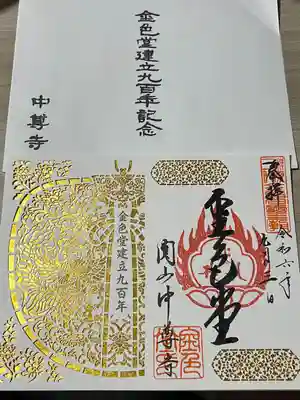 金色堂建立九百年記念
中尊寺
金色堂建立九百年
奉拝
令和六年
九月二日
金色堂
関山中尊寺